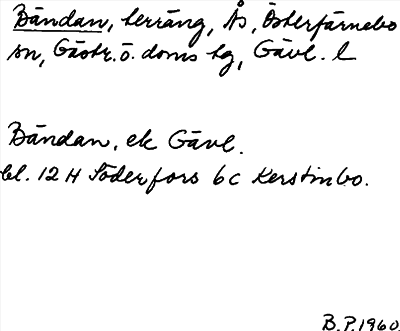 Bändan, terräng, Ås, Österfärnebo
sn, Gästr. ö. doms tg, Gävl. l
Bändan, ek Gävl.
bl. 12 H Söderfors 6 c Kerstinbo.
B.P. 1960.